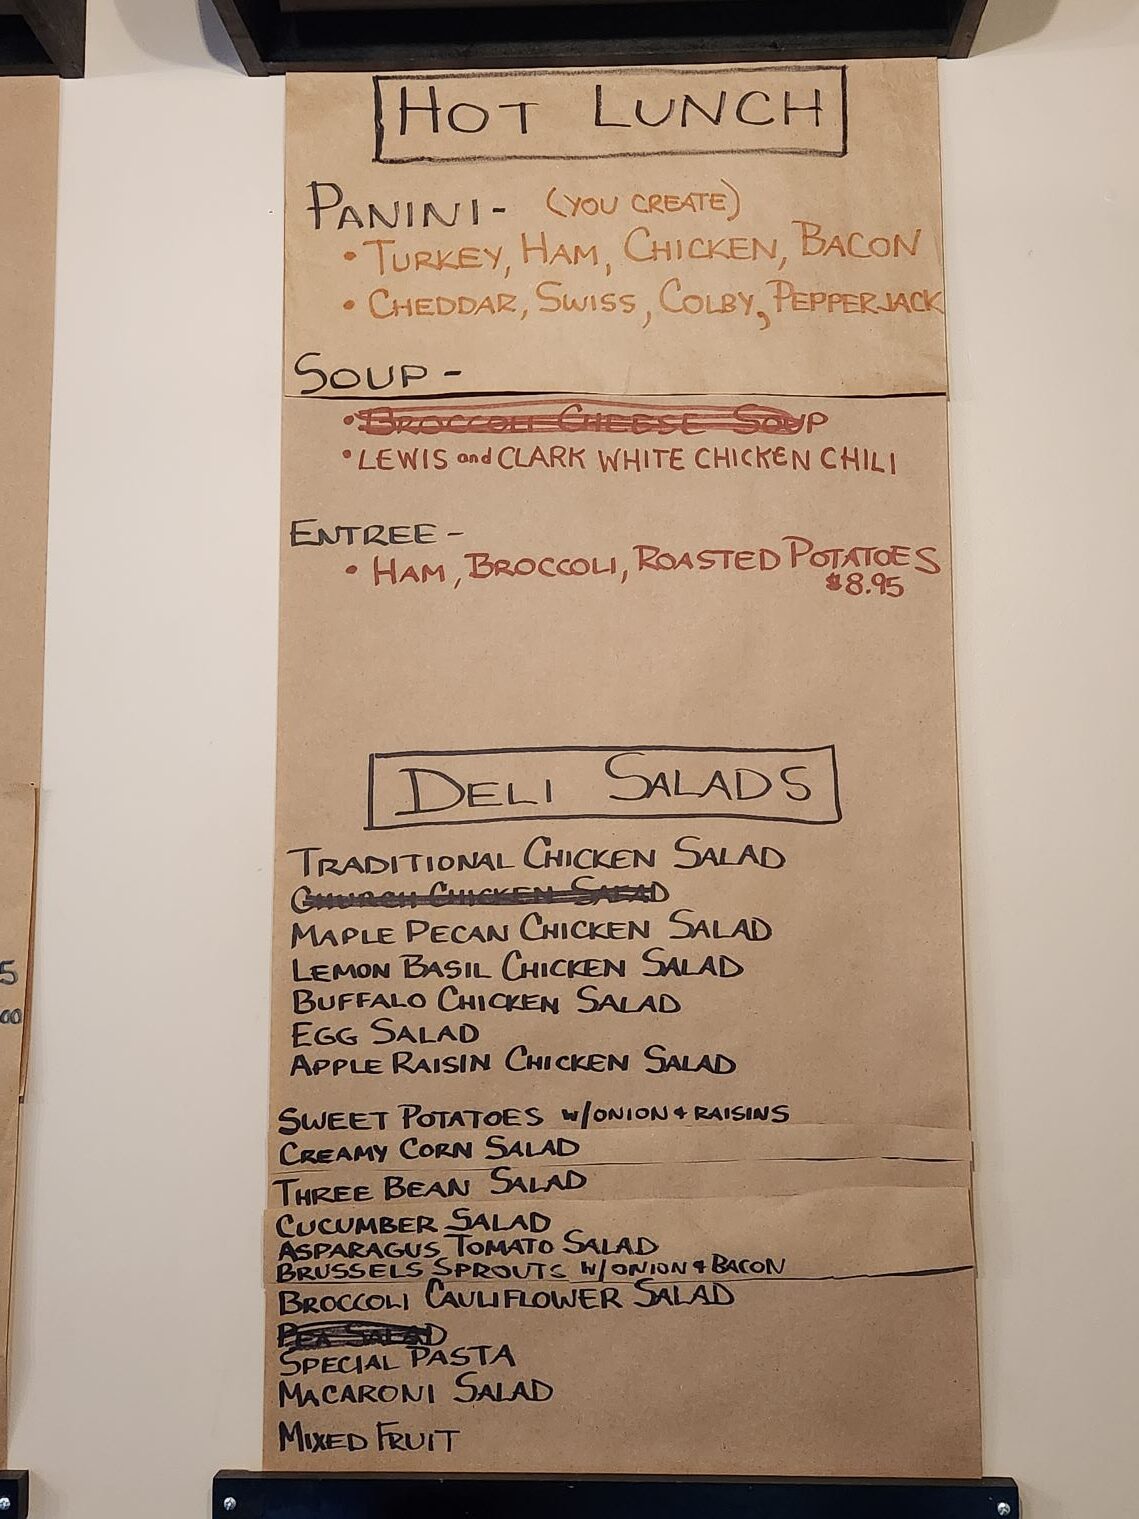 HOT LUNCH
PANINI- (YOU CREATE)
• TURKEY, HAM, CHICKEN, BACON
• CHEDDAR, SWISS, COLBY, PEPPERJACK
SOUP -
• BROCCOLI CHEESE SOUP
• LEWIS and CLARK WHITE CHICKEN CHILI
ENTREE -
• HAM, BROCCOLI, ROASTED POTATOES
$8.95
DELI SALADS
TRADITIONAL CHICKEN SALAD
CHURCH CHICKEN SALAD
MAPLE PECAN CHICKEN SALAD
LEMON BASIL CHICKEN SALAD
BUFFALO CHICKEN SALAD
EGG SALAD
APPLE RAISIN CHICKEN SALAD
SWEET POTATOES w/ONION & RAISINS
CREAMY CORN SALAD
THREE BEAN SALAD
CUCUMBER SALAD
ASPARAGUS TOMATO SALAD
BRUSSELS SPROUTS W/ONION & BACON
BROCCOLI CAULIFLOWER SALAD
PEA SALAD
SPECIAL PASTA
MACARONI SALAD
MIXED FRUIT
5
00